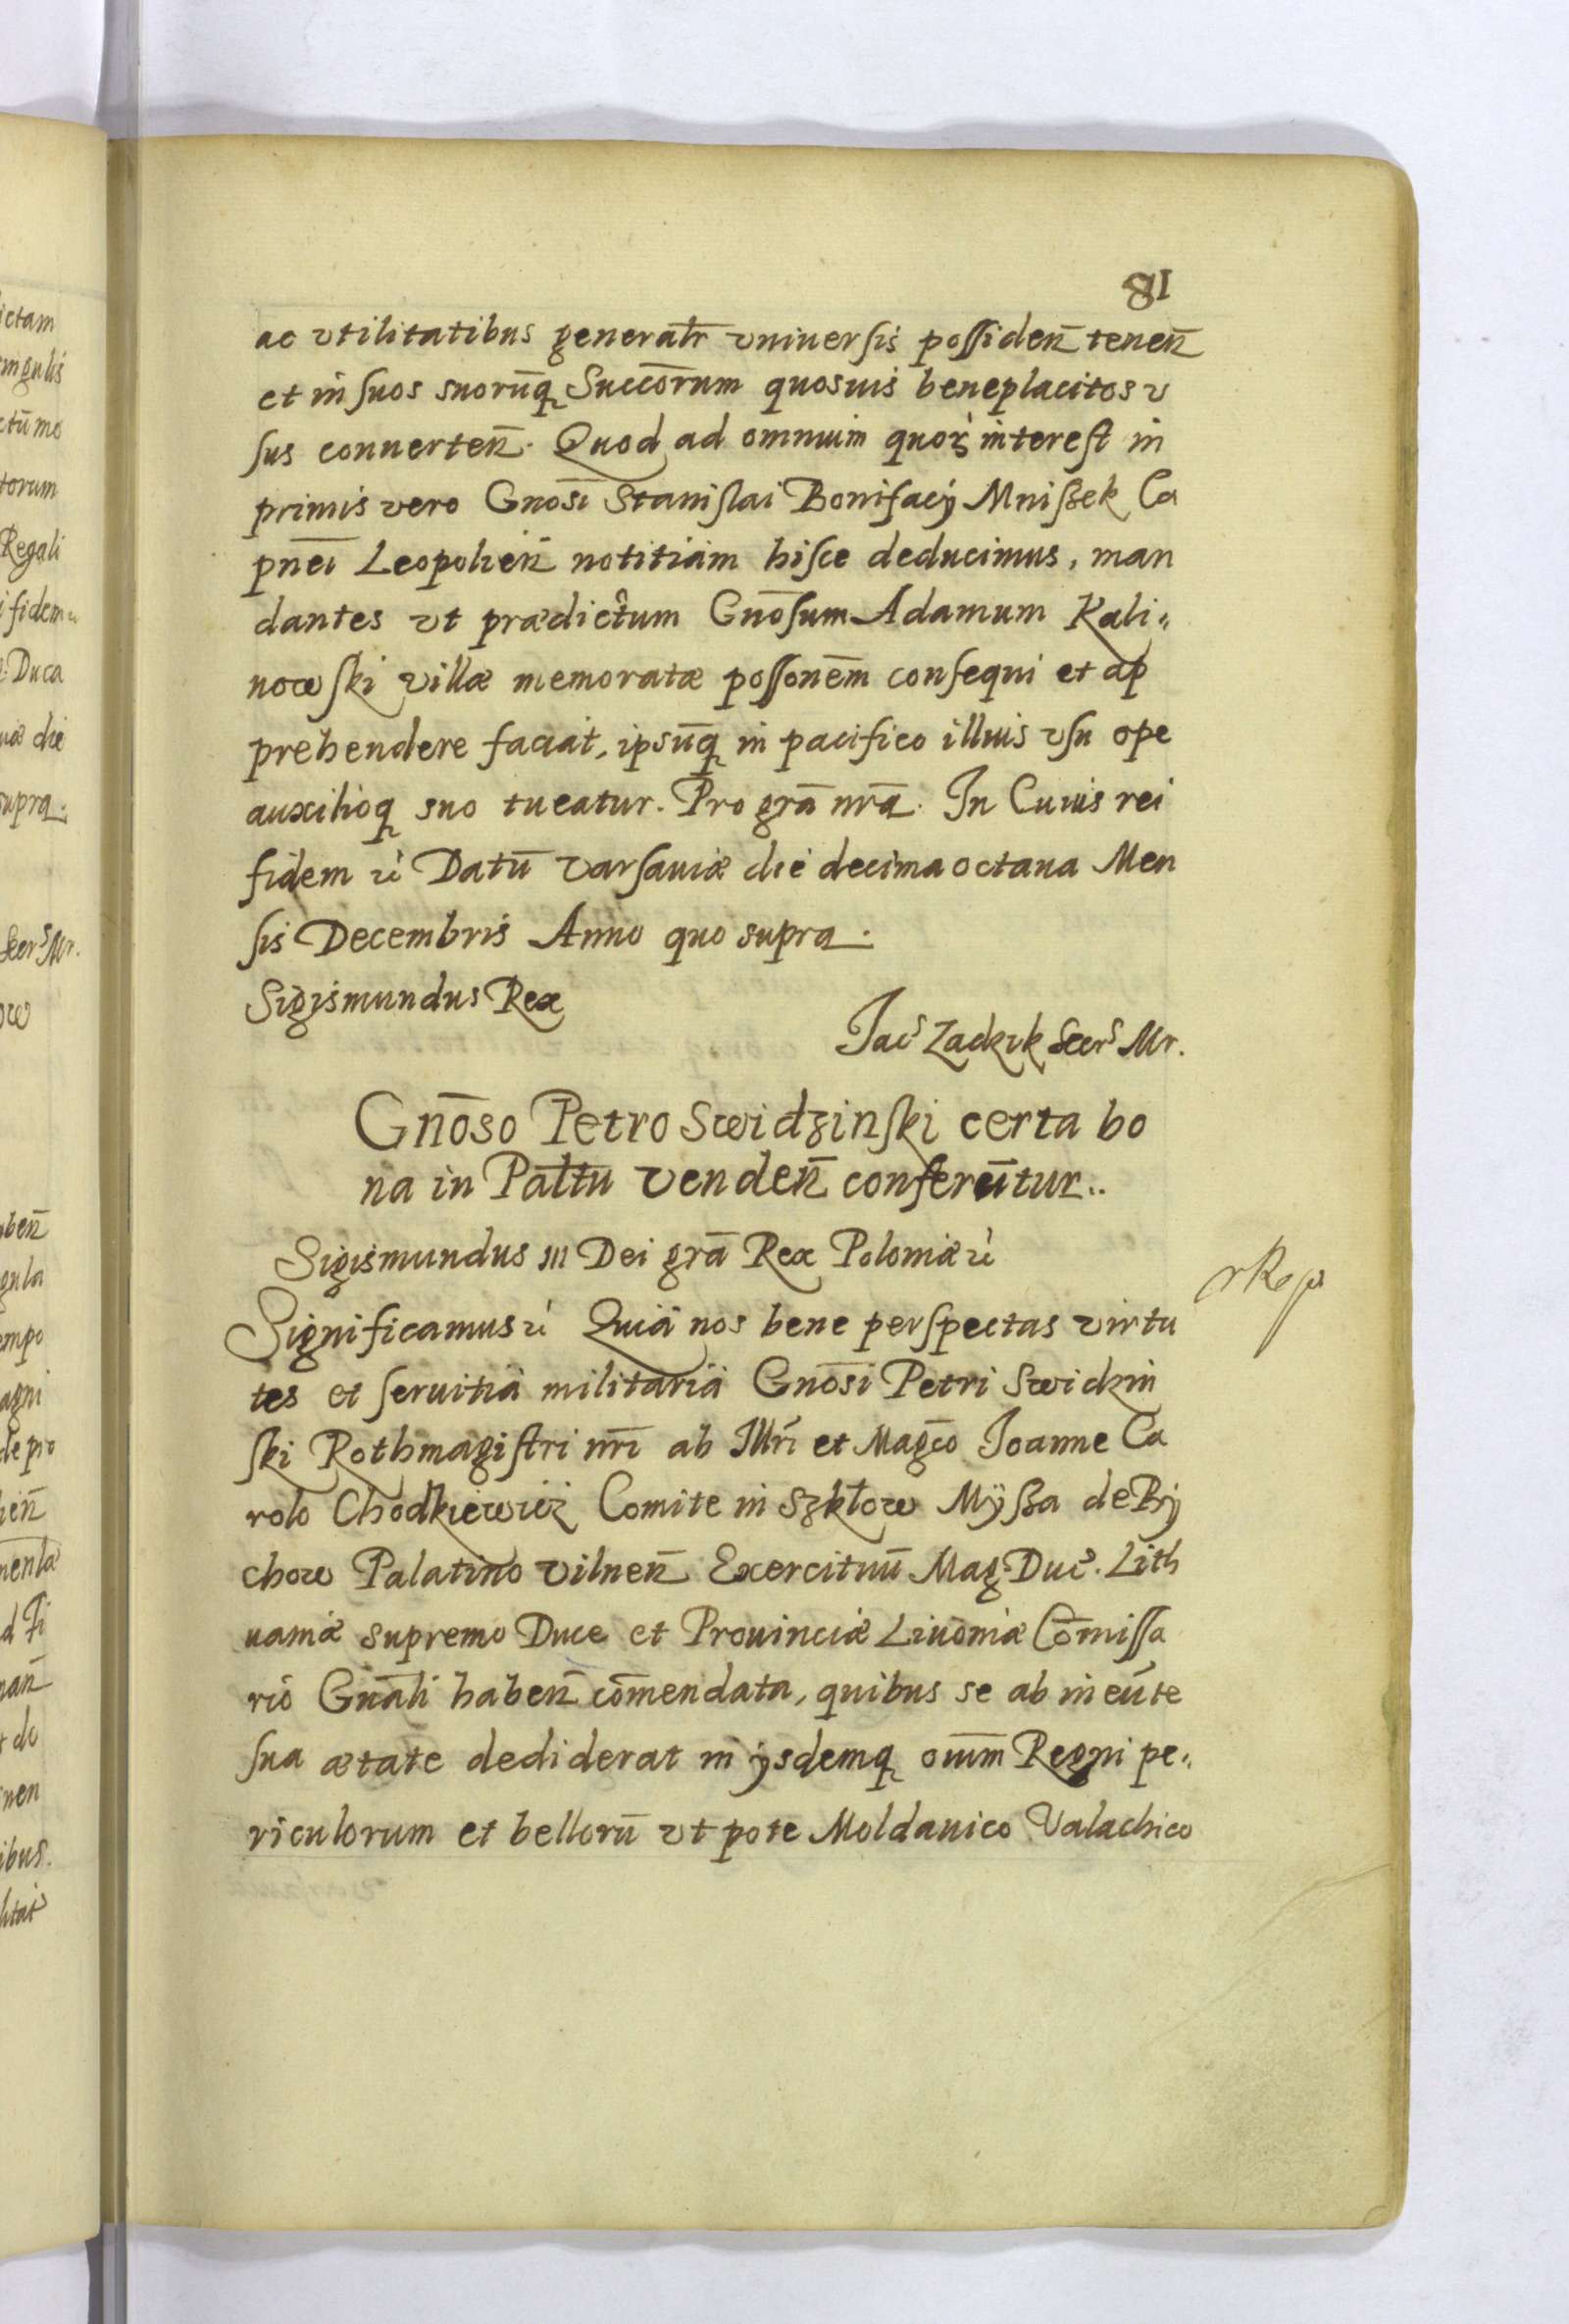 81
ac vtilitatibus generalr vniuersis possideñ teneñ
et in suos suorūq Succōrum quosuis beneplacitos v
sus conuerteñ. Quod ad omnium quorū interest in
primis vero Gnōsi Stanislai Bonifacij Mnißek Ca
pnēi Leopolieñ notitiam hisce deducimus, man
dantes vt prædictum Gnōsum Adamum Kali„
nowski villæ memoratæ possonēm consequi et ap
prehendere faciat, ipsūq in pacifico illius vsu ope
auxilioq suo tueatur. Pro grā nrā. In Cuius rei
fidem &c Datū Varsauiæ die decima octaua Men
sis Decembris Anno quo supra.
Sigismundus Rex
Jacs Zadzik Secrs Mr.
Gnōso Petro Swidzinski certa bo
na in Paltu Vendeñ conferūtur..
Sigismundus III Dei grā Rex Poloniæ &c
Significamus &c Quia nos bene perspectas virtu
tes et seruitia militaria Gnōsi Petri Swidzin
ski Rothmagistri nrī ab Illri et Magco Joanne Ca
rolo Chodkiewicz Comite in Szkłow Myßa de By
chow Palatino Vilneñ Exercituū Mag. Duc. Lith
uaniæ supremo Duce et Prouinciæ Liuoniæ Cōmissa
rio Gnāli habeñ cōmendata, quibus se ab ineūte
sua ætate dediderat in ysdemq oīum Regni pe„
riculorum et bellorū vt pote Moldauico Valachico